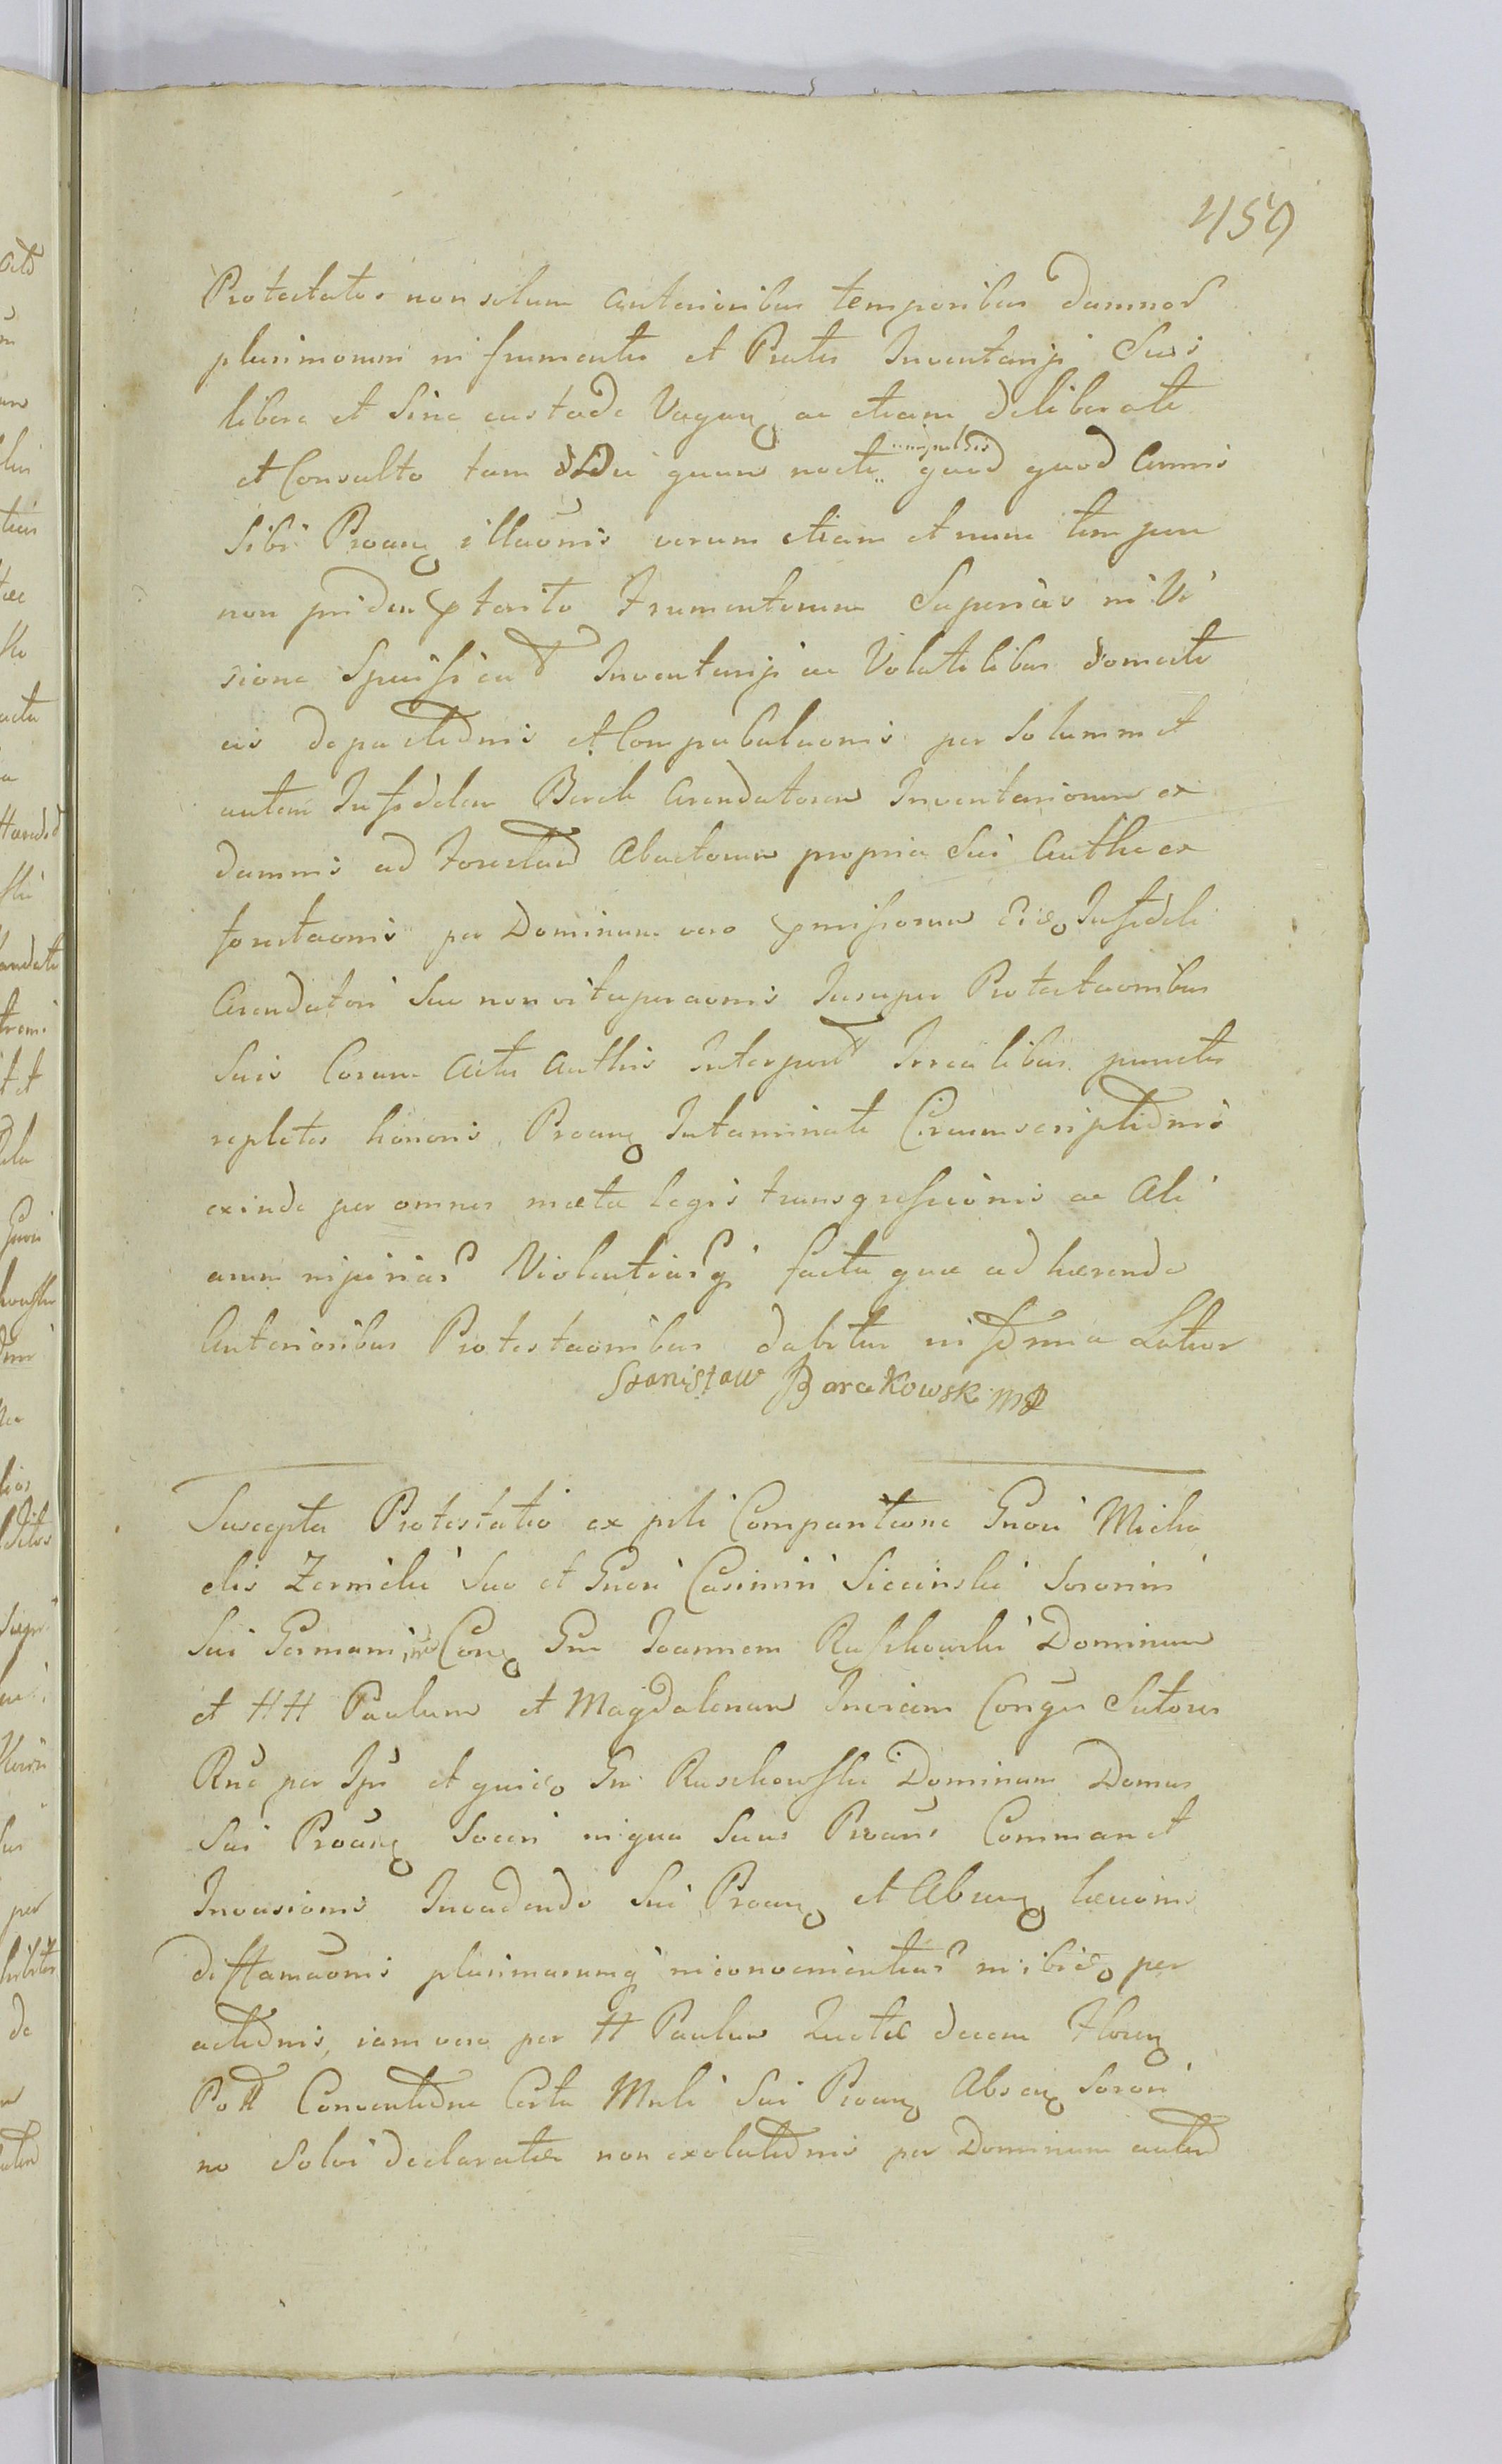 459
Protestatos non solum anterioribus temporibus damnor
plurimorum in frumentis et Pratis Inventarij Sui
libere et Sine custode Vagan ac etiam deliberate
et Consulto tam Die quam nocte quod quod Annis
Sibi Proan illaonis verum etiam et nunc tempore
non pridem pterito Frumentorum Superius in Vi
sione Specificat Inventarij ac Volatilibus domesti
cis depactedonis et Compabulaonis per Solummet
autem Infidelem Berek Arendatorem Inventariorum ex
damnis ad Forestand Abactorum propria Sui Authæ ex
forestaonis per Dominum vero pmissorum Infideli
Arendatori Suo non vituperaonis Insuper Protestaonibus
Suis Coram Actis Aucthis Interposit Irrealibus punctis
repletis honoris Proan Intaminati Circumscriptionis
exinde per omnes mæta legis transgressionis ac Ali
arum injurias Violentiasq facta quæ ad hærendo
Anterioribus Protestaonibus dabitur in forma Latior
Stanisław Barakowsk MP
Suscepta Protestatio ex psli Comparitione Gnosi Micha
elis Zermelii Suo et Gnosi Casimiri Siecinski Sororini
Sui Germani, Con Gm Joannem Ruszkowski Dominum
et HH Paulum et Magdalenam Invicem Conges Sutores
Rne per Ips et Gm Ruschowski Dominum Domus
Sui Proan Soceri in qua Suus Proans Commanet
Invasionis Invadendo Sui Proan et Absen læsionis
diffamaonis plurimarumq inconvenientias in ibid per
actionis, iam vero per H Paulum decem Floren
Poll Conventione Certa Muli Sui Proan Absen Sorori
no Solvi declaratæ non exolutionis per Dominum autem